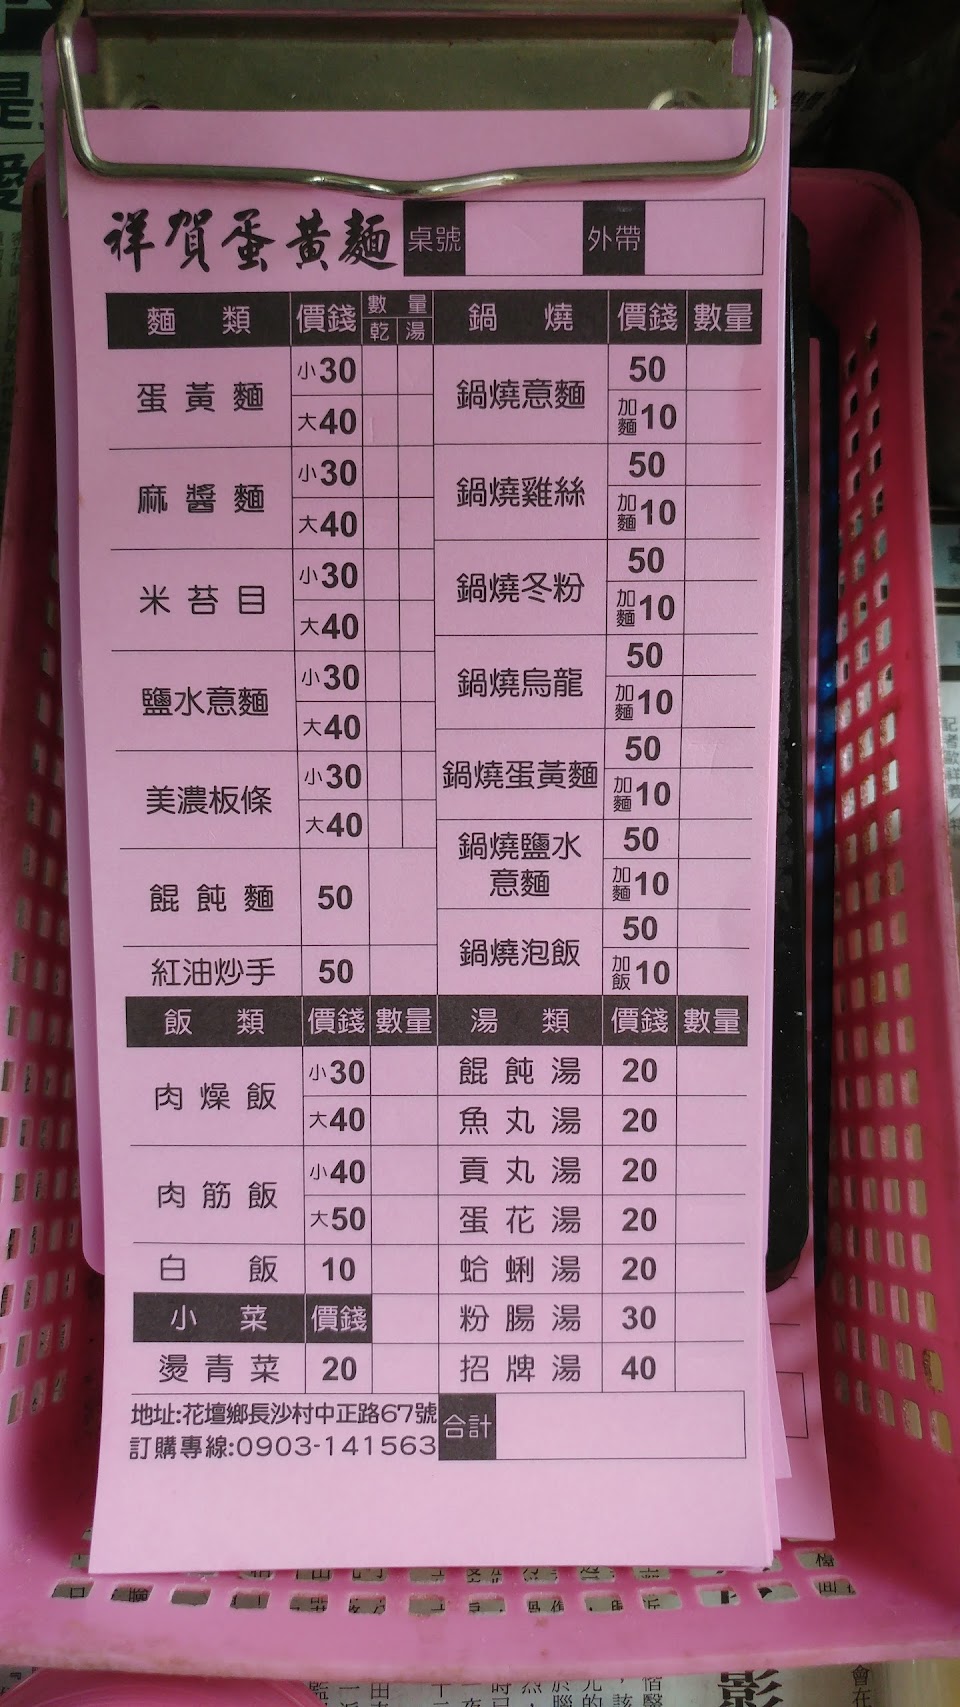 祥賀蛋黃麵 桌號 外帶
麵類 價錢 數量 乾 湯
蛋黃麵 小30 大40
麻醬麵 小30 大40
米苔目 小30 大40
鹽水意麵 小30 大40
美濃板條 小30 大40
餛飩麵 50
紅油炒手 50
鍋燒 價錢 數量
鍋燒意麵 50 加麵10
鍋燒雞絲 50 加麵10
鍋燒冬粉 50 加麵10
鍋燒烏龍 50 加麵10
鍋燒蛋黃麵 50 加麵10
鍋燒鹽水意麵 50 加麵10
鍋燒泡飯 50 加飯10
飯類 價錢 數量
肉燥飯 小30 大40
肉筋飯 小40 大50
白飯 10
小菜 價錢
燙青菜 20
湯類 價錢 數量
餛飩湯 20
魚丸湯 20
貢丸湯 20
蛋花湯 20
蛤蜊湯 20
粉腸湯 30
招牌湯 40
地址:花壇鄉長沙村中正路67號
訂購專線:0903-141563
合計